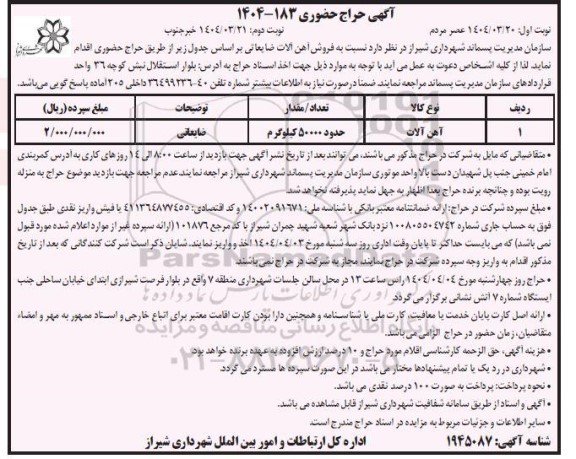 آگهی حراج حضوری ۱۸۳-۱۴۰۴
نوبت اول: ۱۴۰۴/۰۳/۲۰ عصر مردم
نوبت دوم: ۱۴۰۴/۰۳/۲۱ خبرجنوب
سازمان مدیریت پسماند شهرداری شیراز در نظر دارد نسبت به فروش آهن آلات ضایعاتی بر اساس جدول زیر از طریق حراج حضوری اقدام
نماید. لذا از کلیه اشخاص دعوت به عمل می آید با توجه به موارد ذیل جهت اخذ اسناد حراج به آدرس: بلوار استقلال نبش کوچه ۳۶ واحد
قراردادهای سازمان مدیریت پسماند مراجعه نمایند. ضمنا درصورت نیاز به اطلاعات بیشتر شماره تلفن ۴۰-۳۶۴۹۹۲۳۶ داخلی ۲۰۵ آماده پاسخ گویی می‌باشد.
ردیف نوع کالا تعداد/مقدار توضیحات مبلغ سپرده (ریال)
۱ آهن آلات حدود ۵۰۰۰۰ کیلوگرم ضایعاتی ۲/۰۰۰/۰۰۰/۰۰۰
• متقاضیانی که مایل به شرکت در حراج مذکور می باشند، می توانند بعد از تاریخ نشر آگهی جهت بازدید از ساعت ۸:۰۰ الی ۱۴ روزهای کاری به آدرس کمربندی
امام خمینی جنب پل شهیدان دست بالا واحد موتوری سازمان مدیریت پسماند شهرداری شیراز مراجعه نمایند. عدم مراجعه جهت بازدید موضوع حراج به منزله
رویت بوده و چنانچه برنده حراج بعدا اظهار به جهل نماید پذیرفته نخواهد شد.
• مبلغ سپرده شرکت در حراج: ارائه ضمانتنامه معتبر بانکی با شناسه ملی: ۱۴۰۰۲۰۹۱۶۷۱ و کد اقتصادی: ۴۱۱۳۶۴۸۷۷۴۵۵ یا فیش واریز نقدی طبق جدول
فوق به حساب جاری شماره ۱۰۰۸۰۵۵۰۴۷۴۲ نزد بانک شهر شعبه شهید چمران شیراز با کد مرجع ۱۱۰۱۸۷۶ (ارائه سپرده غیر از موارد اعلام شده مورد قبول
نمی باشد) که می بایست حداکثر تا پایان وقت اداری روز سه شنبه مورخ ۱۴۰۴/۰۴/۰۳ اخذ و واریز نمایند. شایان ذکر است شرکت کنندگانی که بعد از تاریخ
مذکور اقدام به واریز وجه سپرده شرکت در حراج نمایند. مجاز به شرکت در حراج نمی باشند.
• حراج روز چهارشنبه مورخ ۱۴۰۴/۰۴/۰۴ راس ساعت ۱۳ در محل سالن جلسات شهرداری منطقه ۷ واقع در بلوار فرصت شیرازی ابتدای خیابان ساحلی جنب
ایستگاه شماره ۷ آتش نشانی برگزار می گردد.
• ارائه اصل کارت پایان خدمت یا معافیت، کارت ملی یا شناسنامه و همچنین دارا بودن کارت اقامت معتبر برای اتباع خارجی و اسناد ممهور به مهر و امضاء
متقاضیان، زمان حضور در حراج الزامی می باشد.
• هزینه آگهی، حق الزحمه کارشناسی اقلام مورد حراج و ۱۰ درصد ارزش افزوده به عهده برنده خواهد بود.
• شهرداری در رد یک یا تمام پیشنهادها مختار می باشد در این صورت سپرده ها مسترد می گردد.
• نحوه پرداخت: پرداخت به صورت ۱۰۰ درصد نقدی می باشد.
• آگهی و اسناد از طریق سامانه شفافیت شهرداری شیراز قابل مشاهده می باشد.
• سایر اطلاعات و جزئیات مربوط به مزایده در اسناد حراج مندرج است.
شناسه آگهی: ۱۹۴۵۰۸۷
اداره کل ارتباطات و امور بین الملل شهرداری شیراز